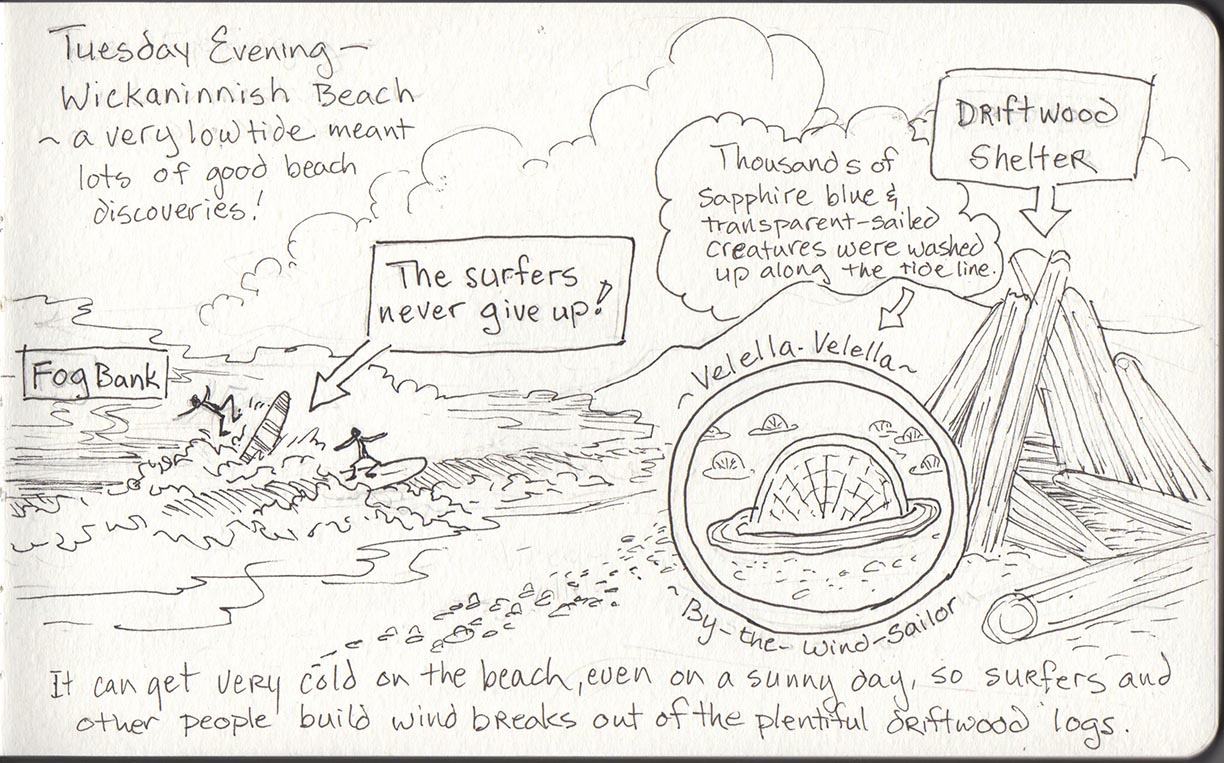 Tuesday Evening –
Wickaninnish Beach
~ a very low tide meant
lots of good beach
discoveries!
The surfers
never give up!
Fog Bank
Thousands of
sapphire blue &
transparent-sailed
creatures were washed
up along the tide line.
Driftwood
Shelter
~ Velella-Velella ~
~ By-the-Wind-Sailor
It can get very cold on the beach, even on a sunny day, so surfers and
other people build wind breaks out of the plentiful driftwood logs.